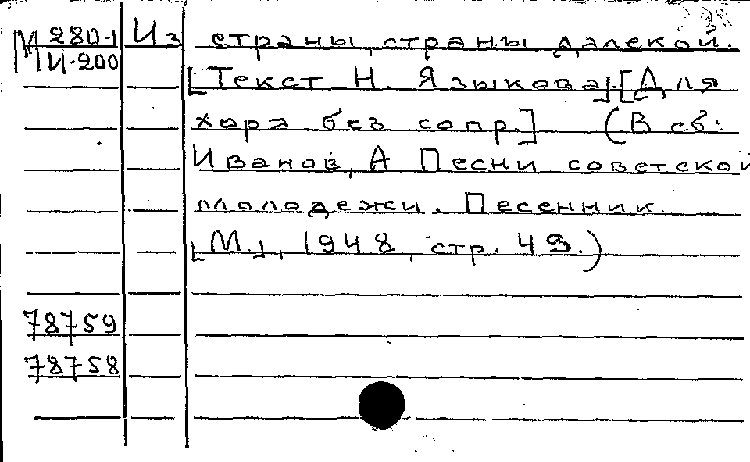 М 280-1 Из страны, страны далекой.
М И-200 [Текст Н. Языкова] [Для
хора без сопр.] (В сб:
Иванов, А Песни советской
молодежи. Песенник.
[М.], 1948, стр. 43.)
78759
78758